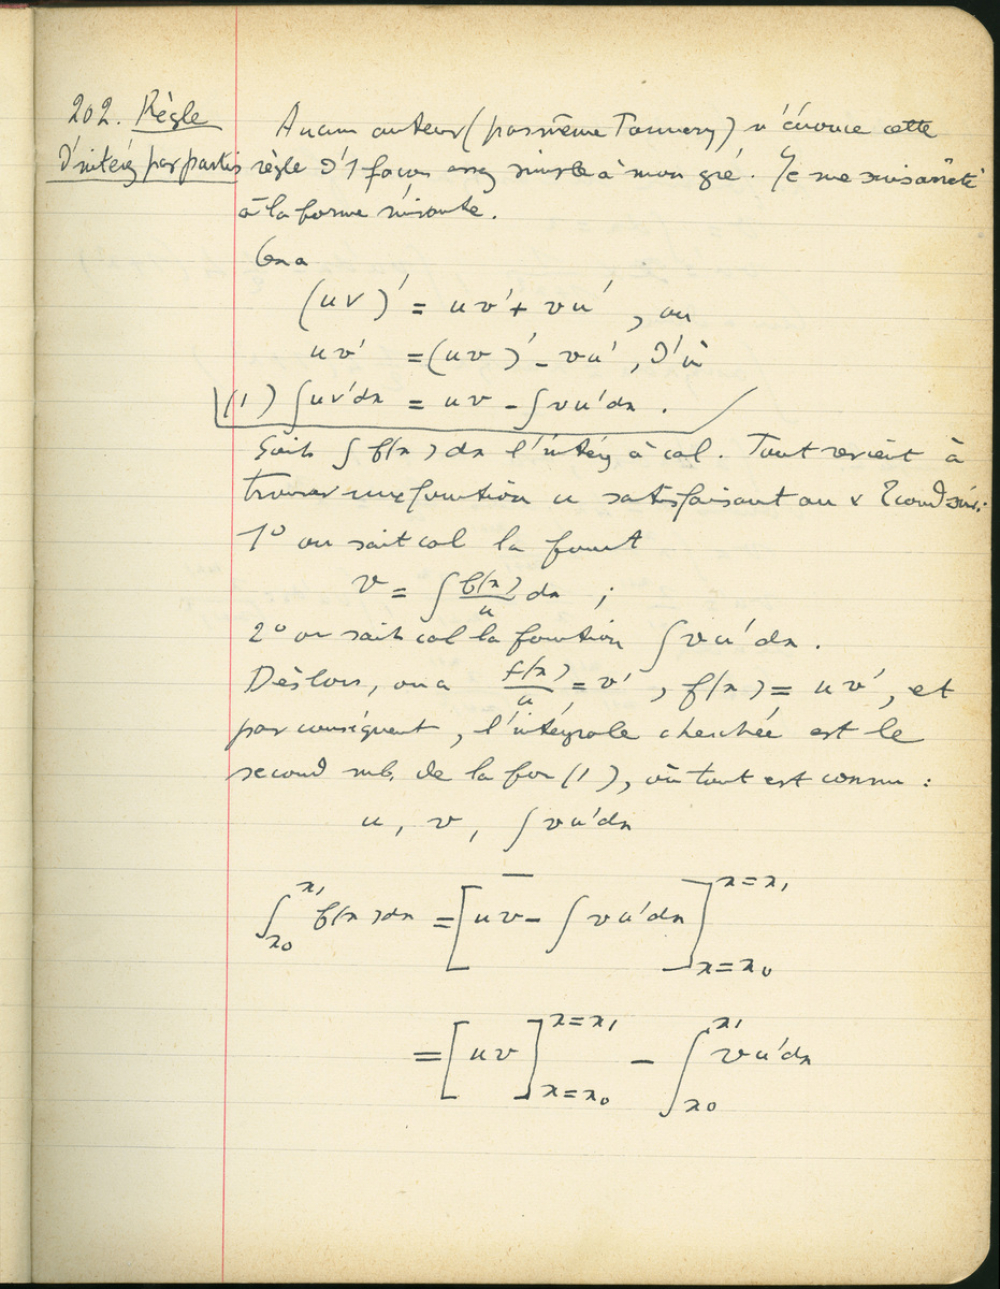 202. Règle
d'intég par parties
Aucun auteur (pas même Tannery) n'énonce cette
règle d'1 façon assez simple à mon gré. Je me suis arrêté
à la forme suivante.
On a
(uv)' = uv' + vu' , ou
uv' = (uv)' - vu' , d'où
(1) ∫uv'dx = uv - ∫vu'dx .
Soit ∫ f(x)dx l'intég à cal. Tout revient à
trouver une fonction u satisfaisant aux 2 cond suiv:
1° on sait cal la fonct
v = ∫ f(x)/u dx ;
2° on sait cal la fonction ∫ vu'dx .
Dès lors, on a f(x)/u = v' , f(x) = uv', et
par conséquent, l'intégrale cherchée est le
second mb. de la for (1), où tout est connu :
u, v, ∫ vu'dx
—
∫_{x_0}^{x_1} f(x)dx = [uv - ∫ vu'dx]_{x=x_0}^{x=x_1}
= [uv]_{x=x_0}^{x=x_1} - ∫_{x_0}^{x_1} vu'dx